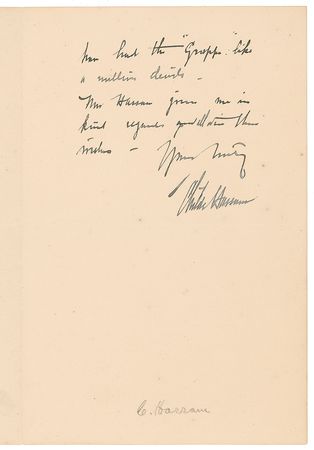 had the "Grapp" like
a million devils -
Mrs Hassam joins me in
kind regards
wishes - Yours truly
Childe Hassam
C. Hassam